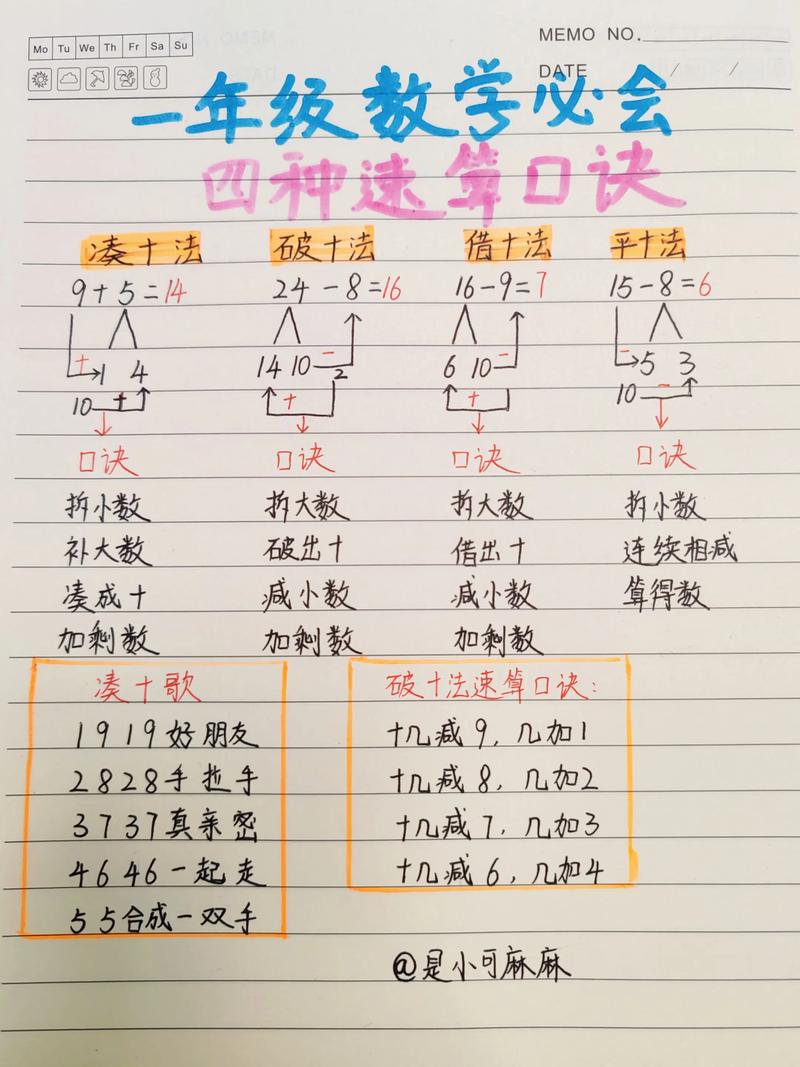 Mo Tu We Th Fr Sa Su
MEMO NO.
DATE / /
一年级数学必会
四种速算口诀
凑十法 破十法 借十法 平十法
9+5=14 24-8=16 16-9=7 15-8=6
+ 1 4 14 10 - 2 6 10 - - 5 3
10 + + + 10 -
口诀 口诀 口诀 口诀
拆小数 拆大数 拆大数 拆小数
补大数 破出十 借出十 连续相减
凑成十 减小数 减小数 算得数
加剩数 加剩数 加剩数
凑十歌
1919好朋友
2828手拉手
3737真亲密
4646一起走
55合成一双手
破十法速算口诀:
十几减9,几加1
十几减8,几加2
十几减7,几加3
十几减6,几加4
@是小可麻麻